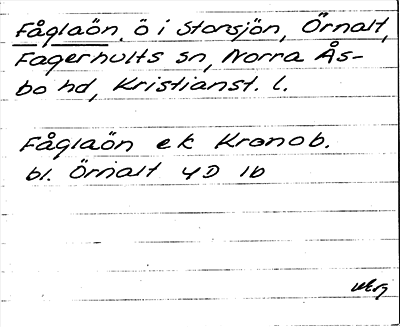 Fåglaön, ö i Storsjön, Örnalt,
Fagerhults sn, Norra Ås-
bo hd, Kristianst. l.
Fåglaön ek Kronob.
bl. Örnalt 4D 1b